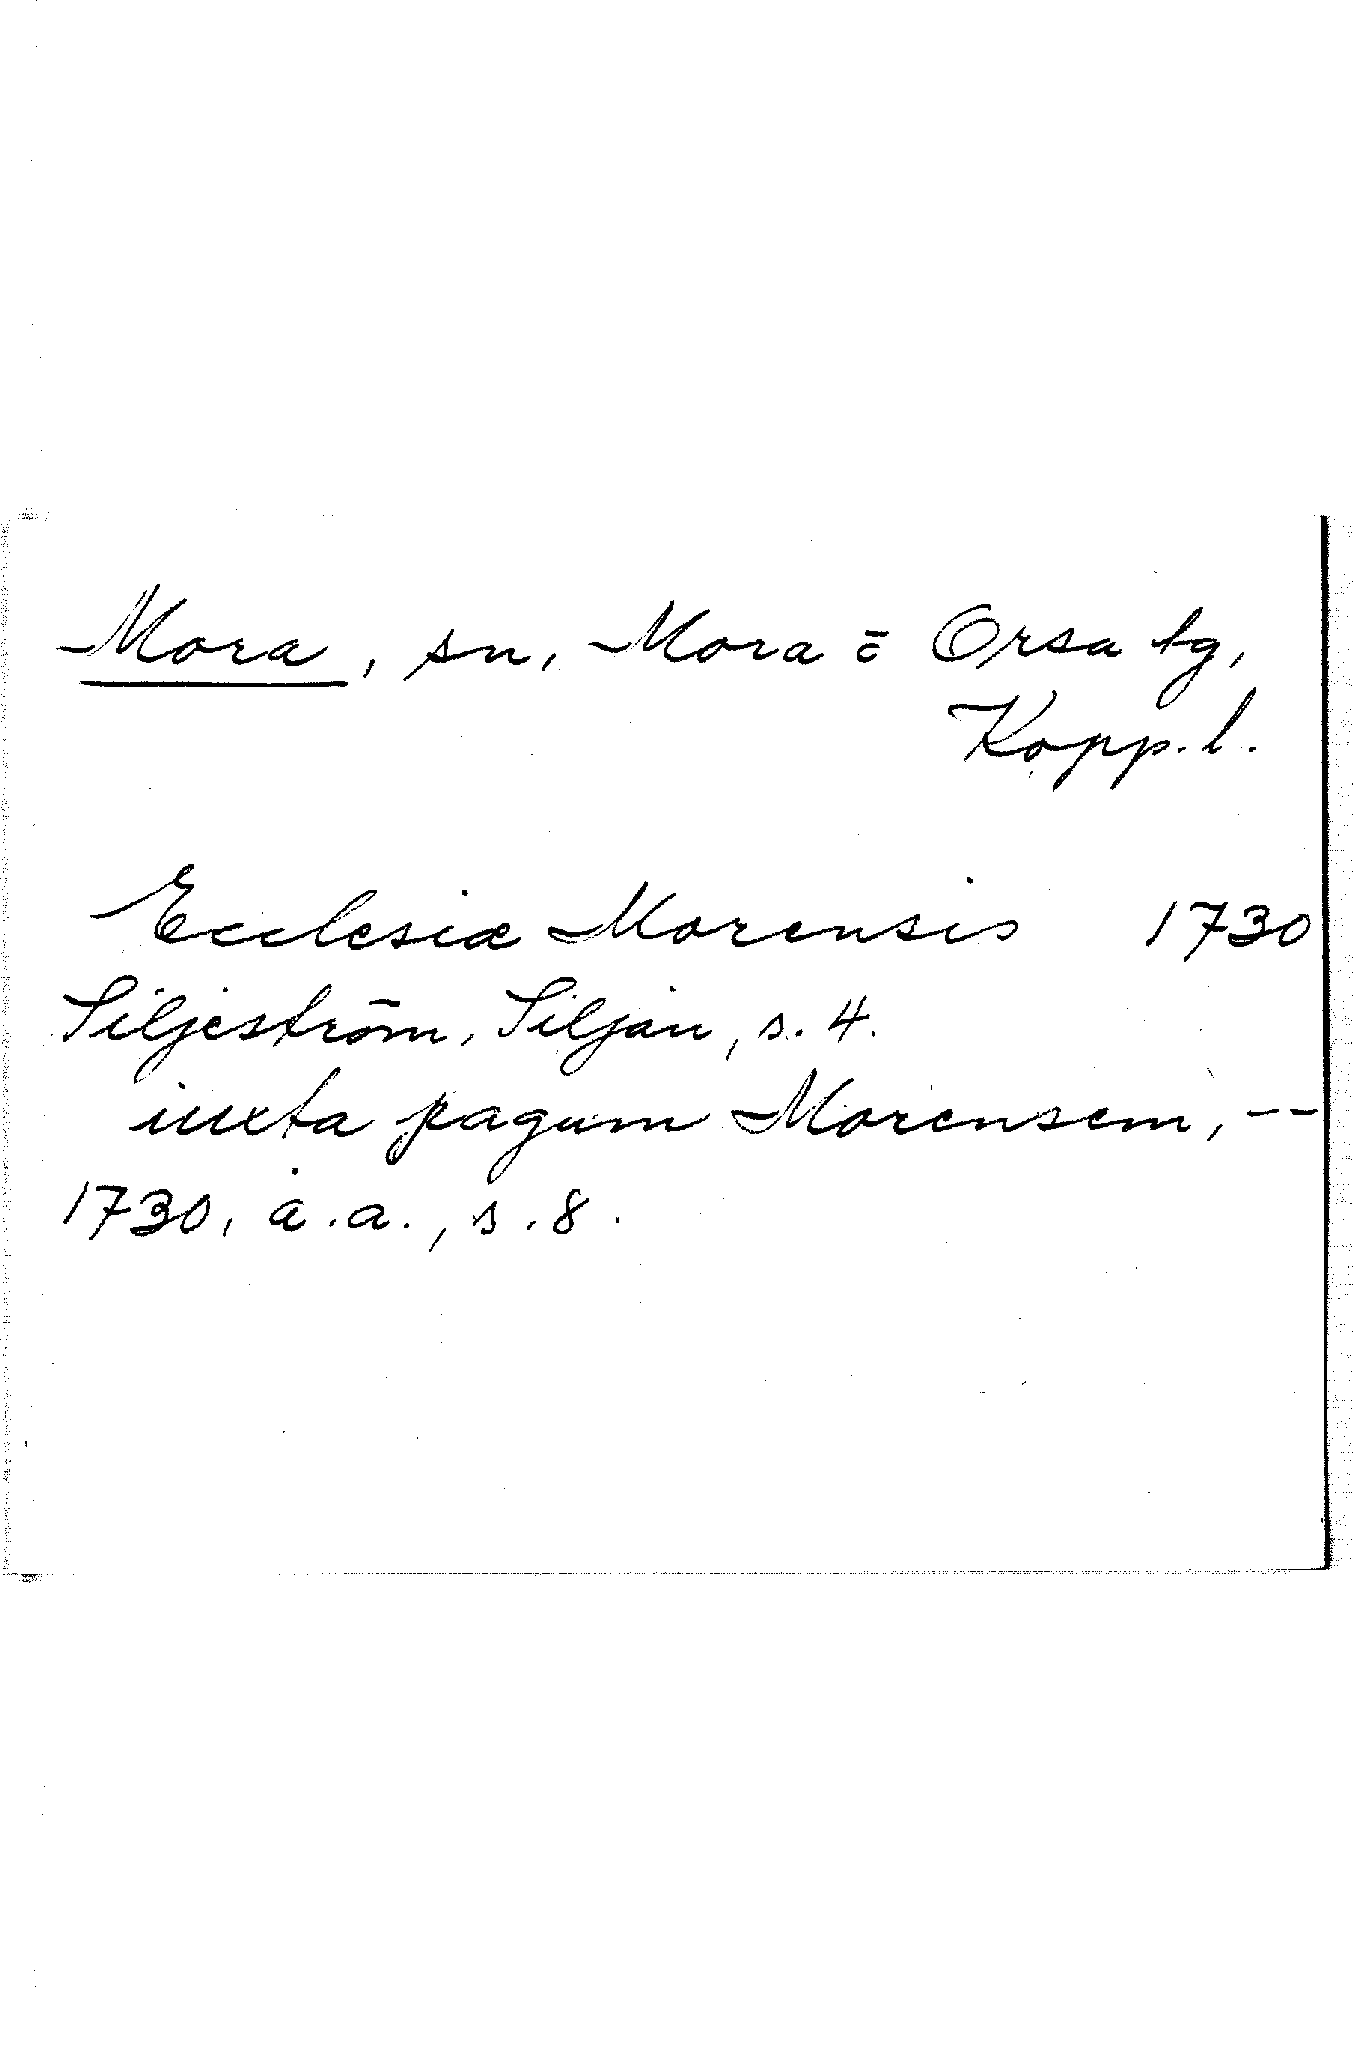 Mora, sn, Mora o Orsa tg,
Kopp. l.
Ecclesiæ Morensis 1730
Siljeström, Siljan, s. 4.
iuxta pagum Morensem, --
1730, a. a., s. 8.